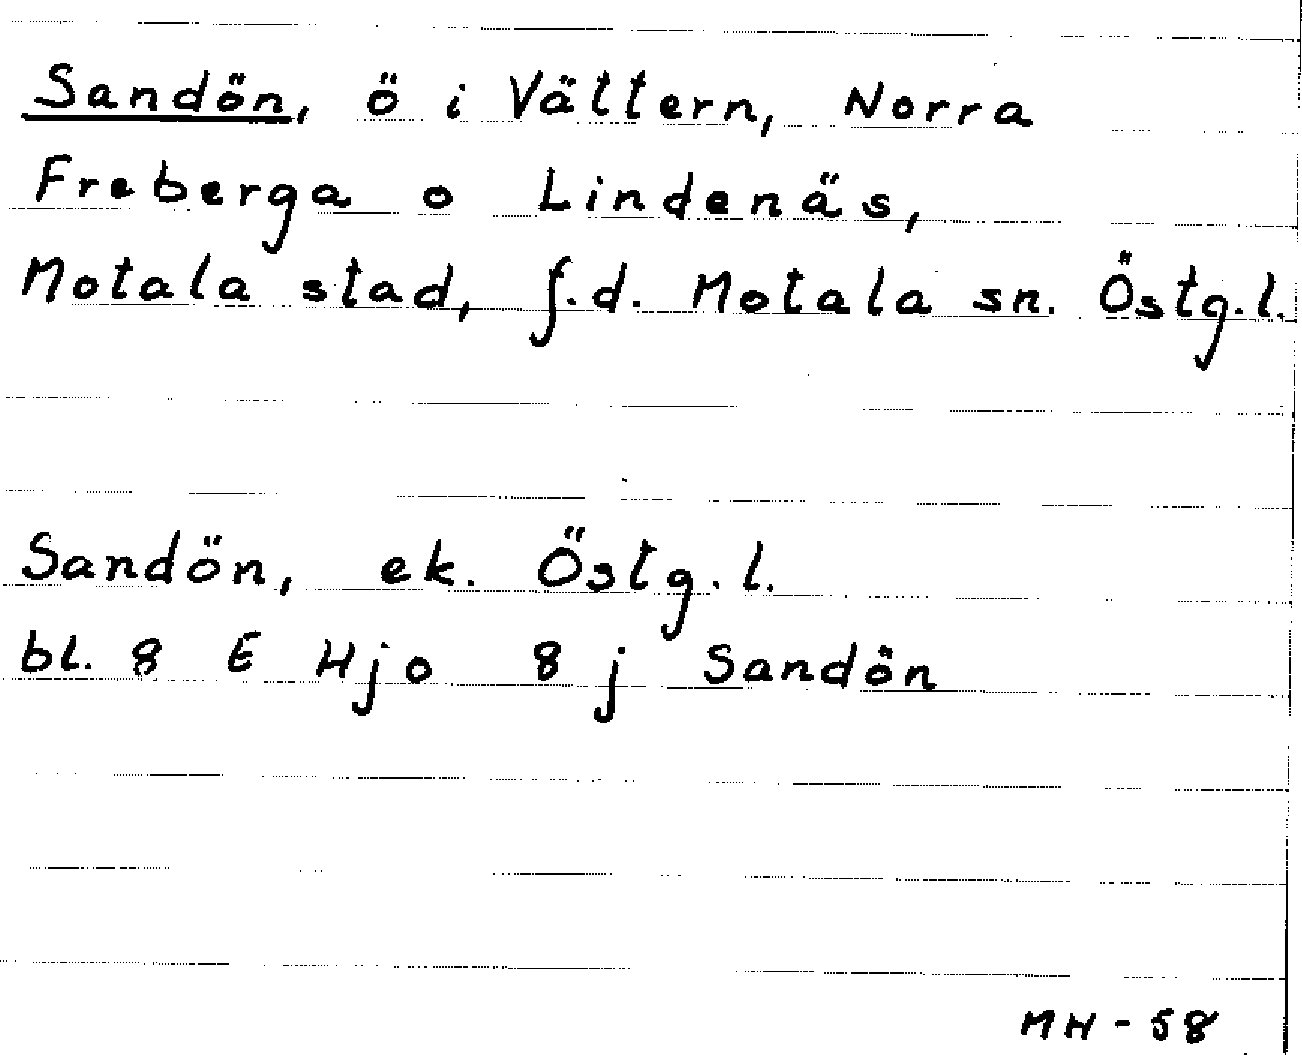 Sandön, ö i Vättern, Norra
Freberga o Lindenäs,
Motala stad, f.d. Motala sn. Östg.l.
Sandön, ek. Östg.l.
bl. 8 E Hjo 8 j Sandön
MH - 58